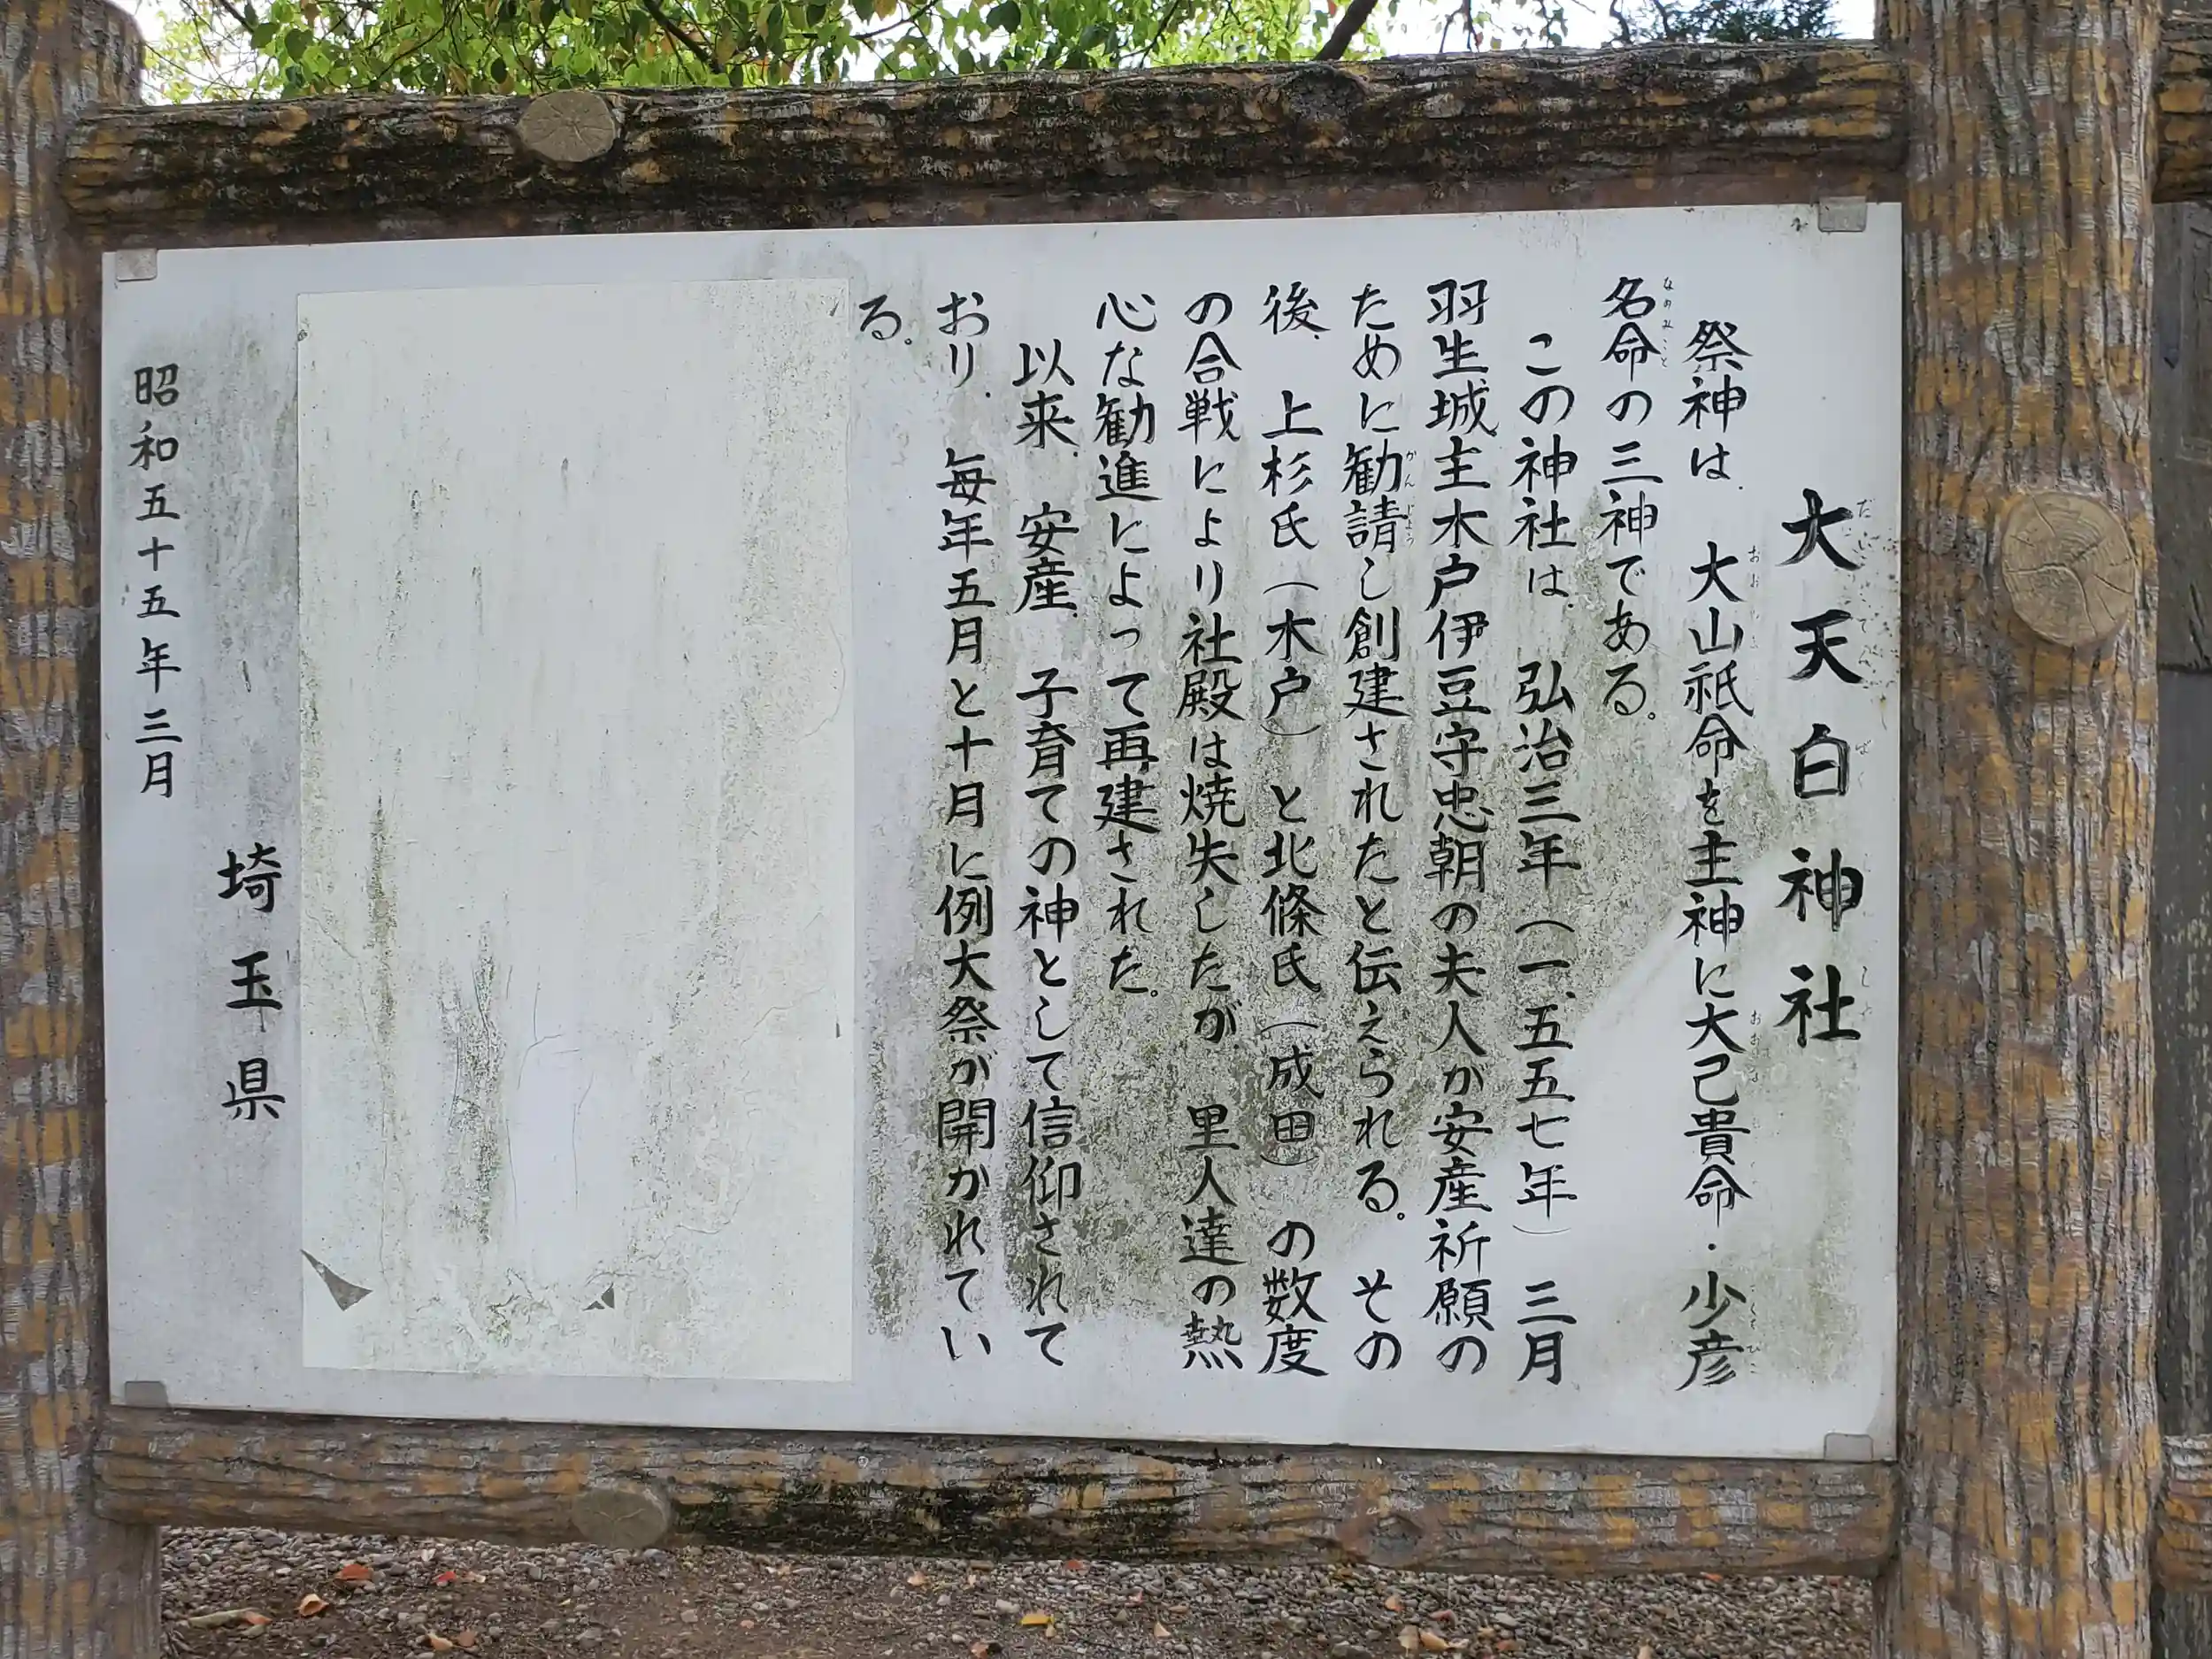 大天白神社
祭神は、大山祇命を主神に大己貴命・少彦
名命の三神である。
この神社は、弘治三年（一、五五七年）三月
羽生城主木戸伊豆守忠朝の夫人が安産祈願の
ために勧請し創建されたと伝えられる。その
後、上杉氏（木戸）と北條氏（成田）の数度
の合戦により社殿は焼失したが、里人達の熱
心な勧進によって再建された。
以来、安産、子育ての神として信仰されて
おり、毎年五月と十月に例大祭が開かれてい
る。
埼玉県
昭和五十五年三月